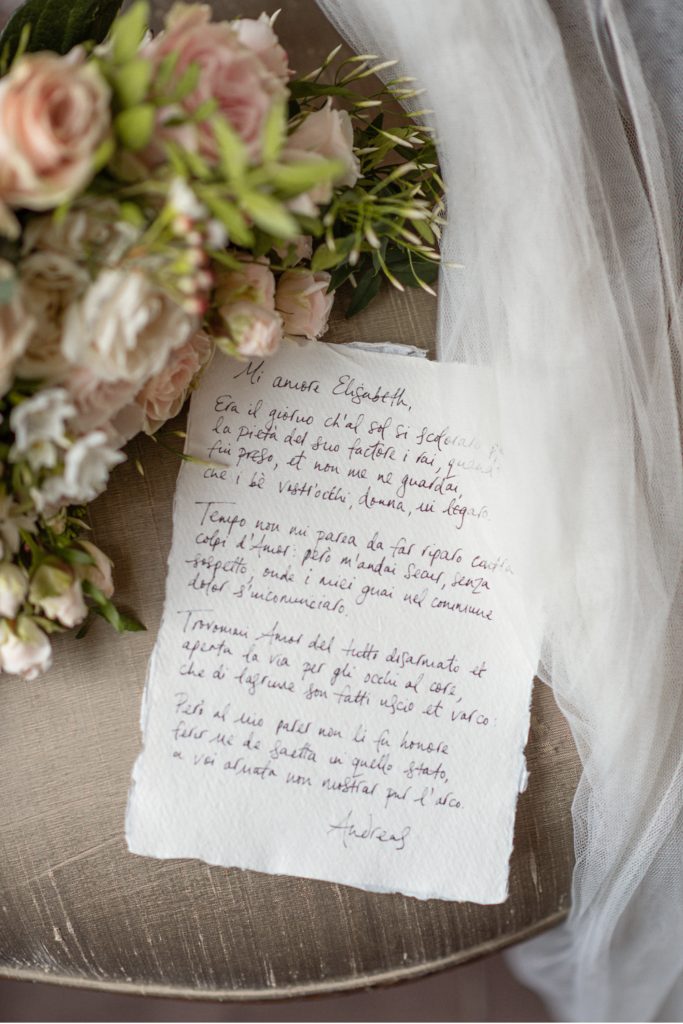 Mi amore Elisabeth,
Era il giorno ch'al sol si scoloraro
la pietà del suo factore i rai,
fui preso, et non me ne guardai,
che i bè vostr'occhi, donna, mi legaro.
Tempo non mi parea da far riparo contra
colpi d'Amor: però m'andai secur, senza
sospetto; onde i miei guai nel commune
dolor s'incominciaro.
Trovommi Amor del tutto disarmato et
aperta la via per gli occhi al core,
che di lagrime son fatti uscio et varco:
Però al mio parer non li fu honore
ferir me de saetta in quello stato,
a voi armata non mostrar pur l'arco.
Andreas